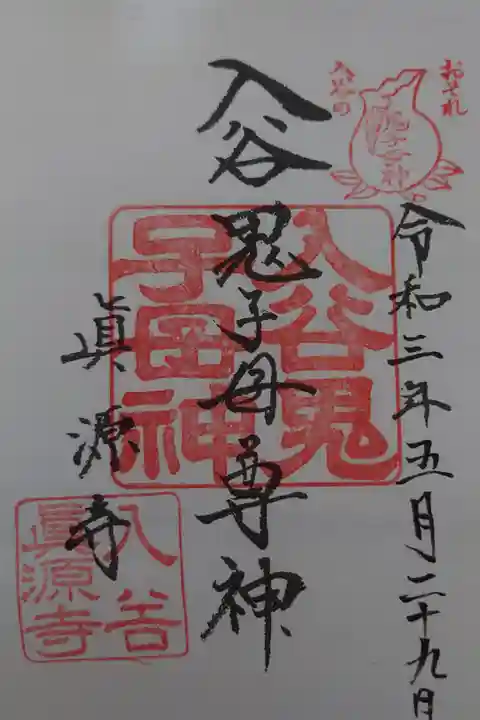 おそれ
入谷の
鬼子母神
令和三年五月二十九日
入谷鬼子母尊神
入谷鬼
子母神
眞源寺
入谷
眞源寺